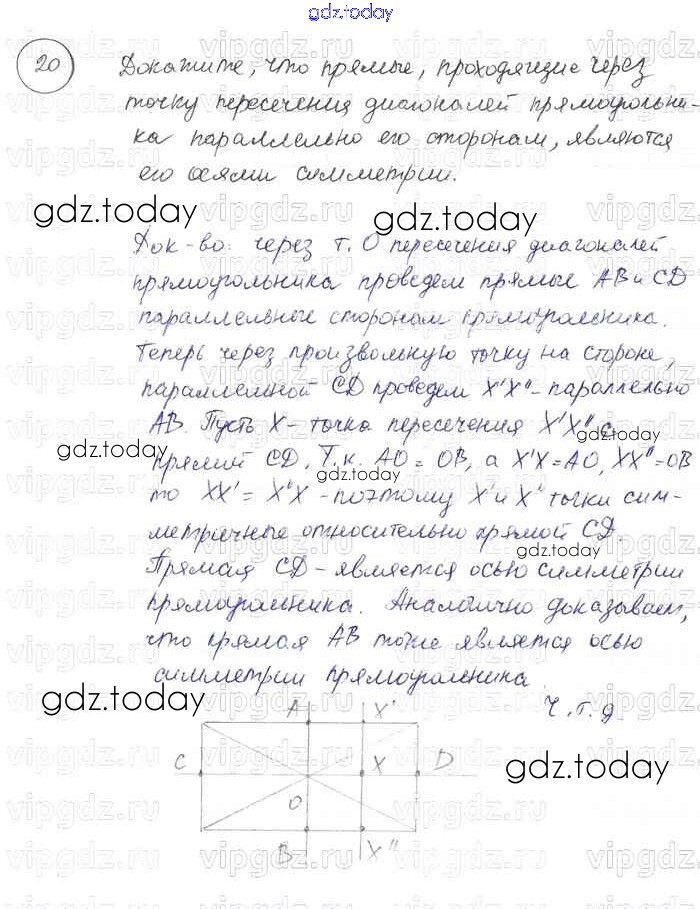 gdz.today
20 Докажите, что прямые, проходящие через
точку пересечения диагоналей прямоугольни-
ка параллельно его сторонам, являются
его осями симметрии.
gdz.today gdz.today
Док-во: через т. О пересечения диагоналей
прямоугольника проведем прямые AB и CD
параллельные сторонам прямоугольника.
Теперь через произвольную точку на стороне,
параллельной CD проведем X'X"-параллельно
AB. Пусть X-точка пересечения X'X" с
gdz.today gdz.today
прямой CD. Т.к. AO = OB, а X'X=AO, XX"=OB
gdz.today
то XX' = X"X - поэтому X' и X" точки сим-
метричные относительно прямой CD.
gdz.today
Прямая CD - является осью симметрии
прямоугольника. Аналогично доказываем,
что прямая AB тоже является осью
симметрии прямоугольника.
gdz.today
Ч.т.д
A X'
C X D
gdz.today
O
B X"